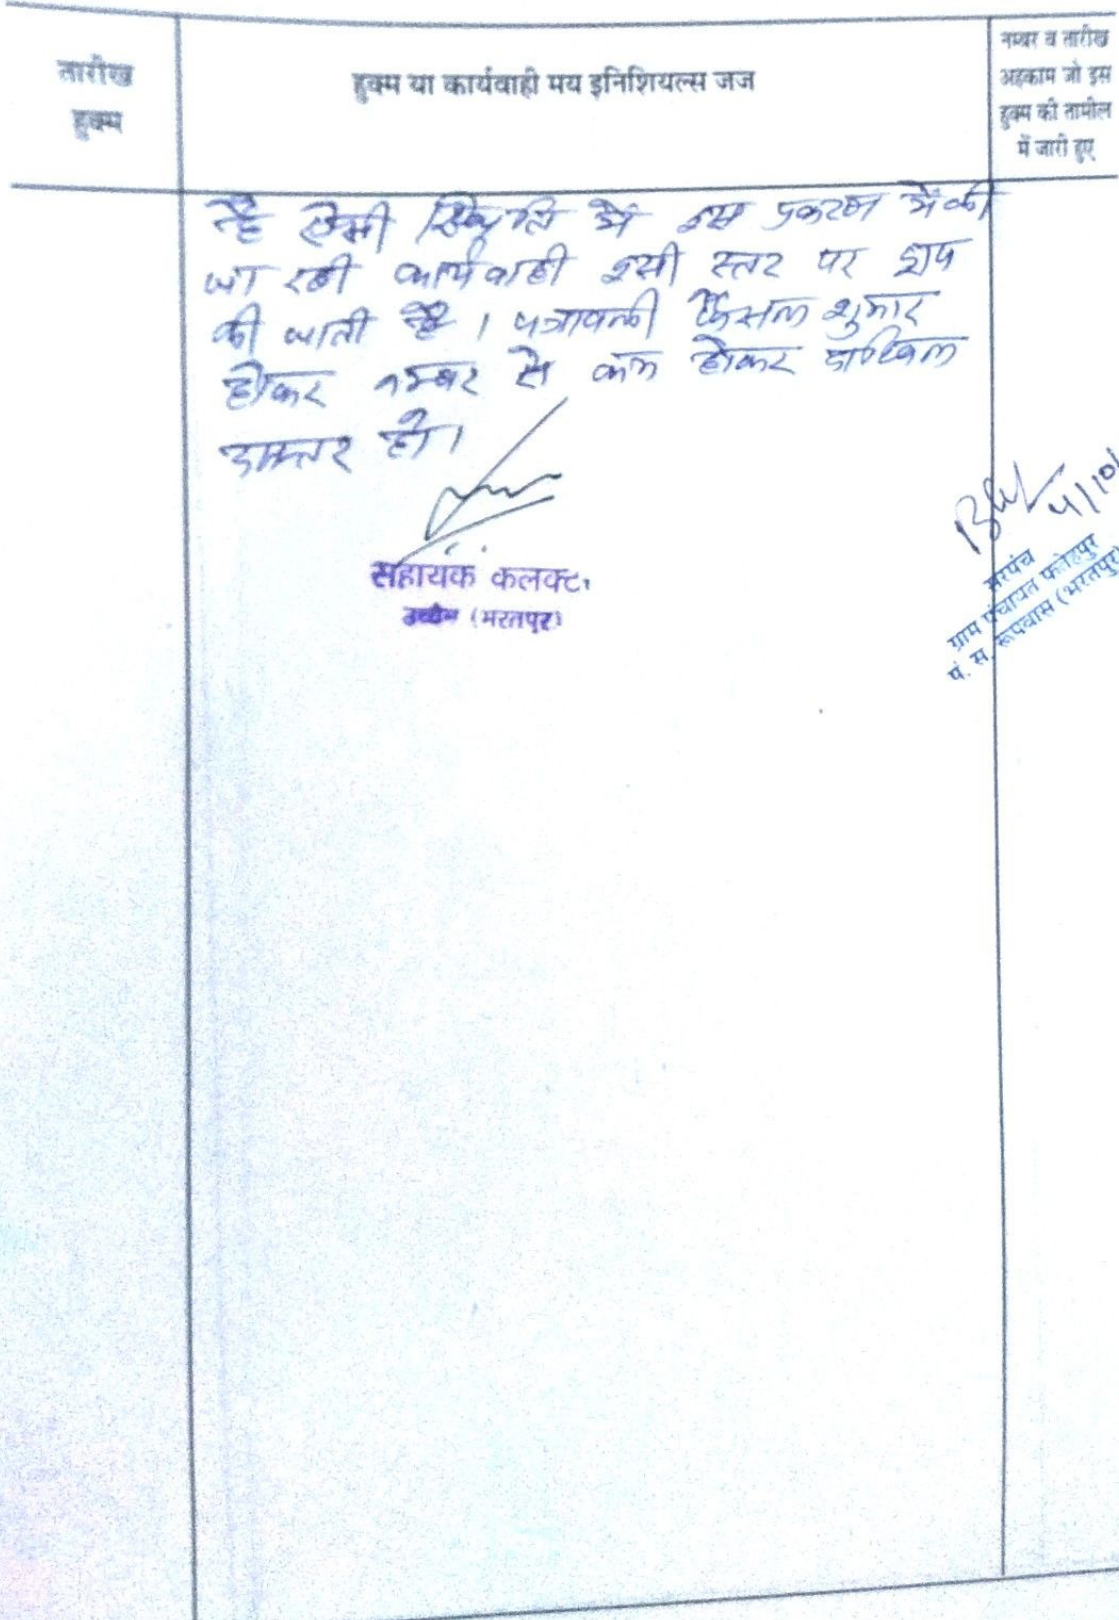 तारीख
हुक्म
हुक्म या कार्यवाही मय इनिशियल्स जज
नम्बर व तारीख
अहकाम जो इस
हुक्म की तामील
में जारी हुए
है ऐसी स्थिति में इस प्रकरण में की
जा रही कार्यवाही इसी स्तर पर ड्राप
की जाती है। पत्रावली फैसल शुमार
होकर नम्बर से कम होकर दाखिल
दफ्तर हो।
सहायक कलक्ट
(भरतपुर)
4/10/
सरपंच
ग्राम पंचायत फतेहपुर
पं. स. रूपवास (भरतपुर)